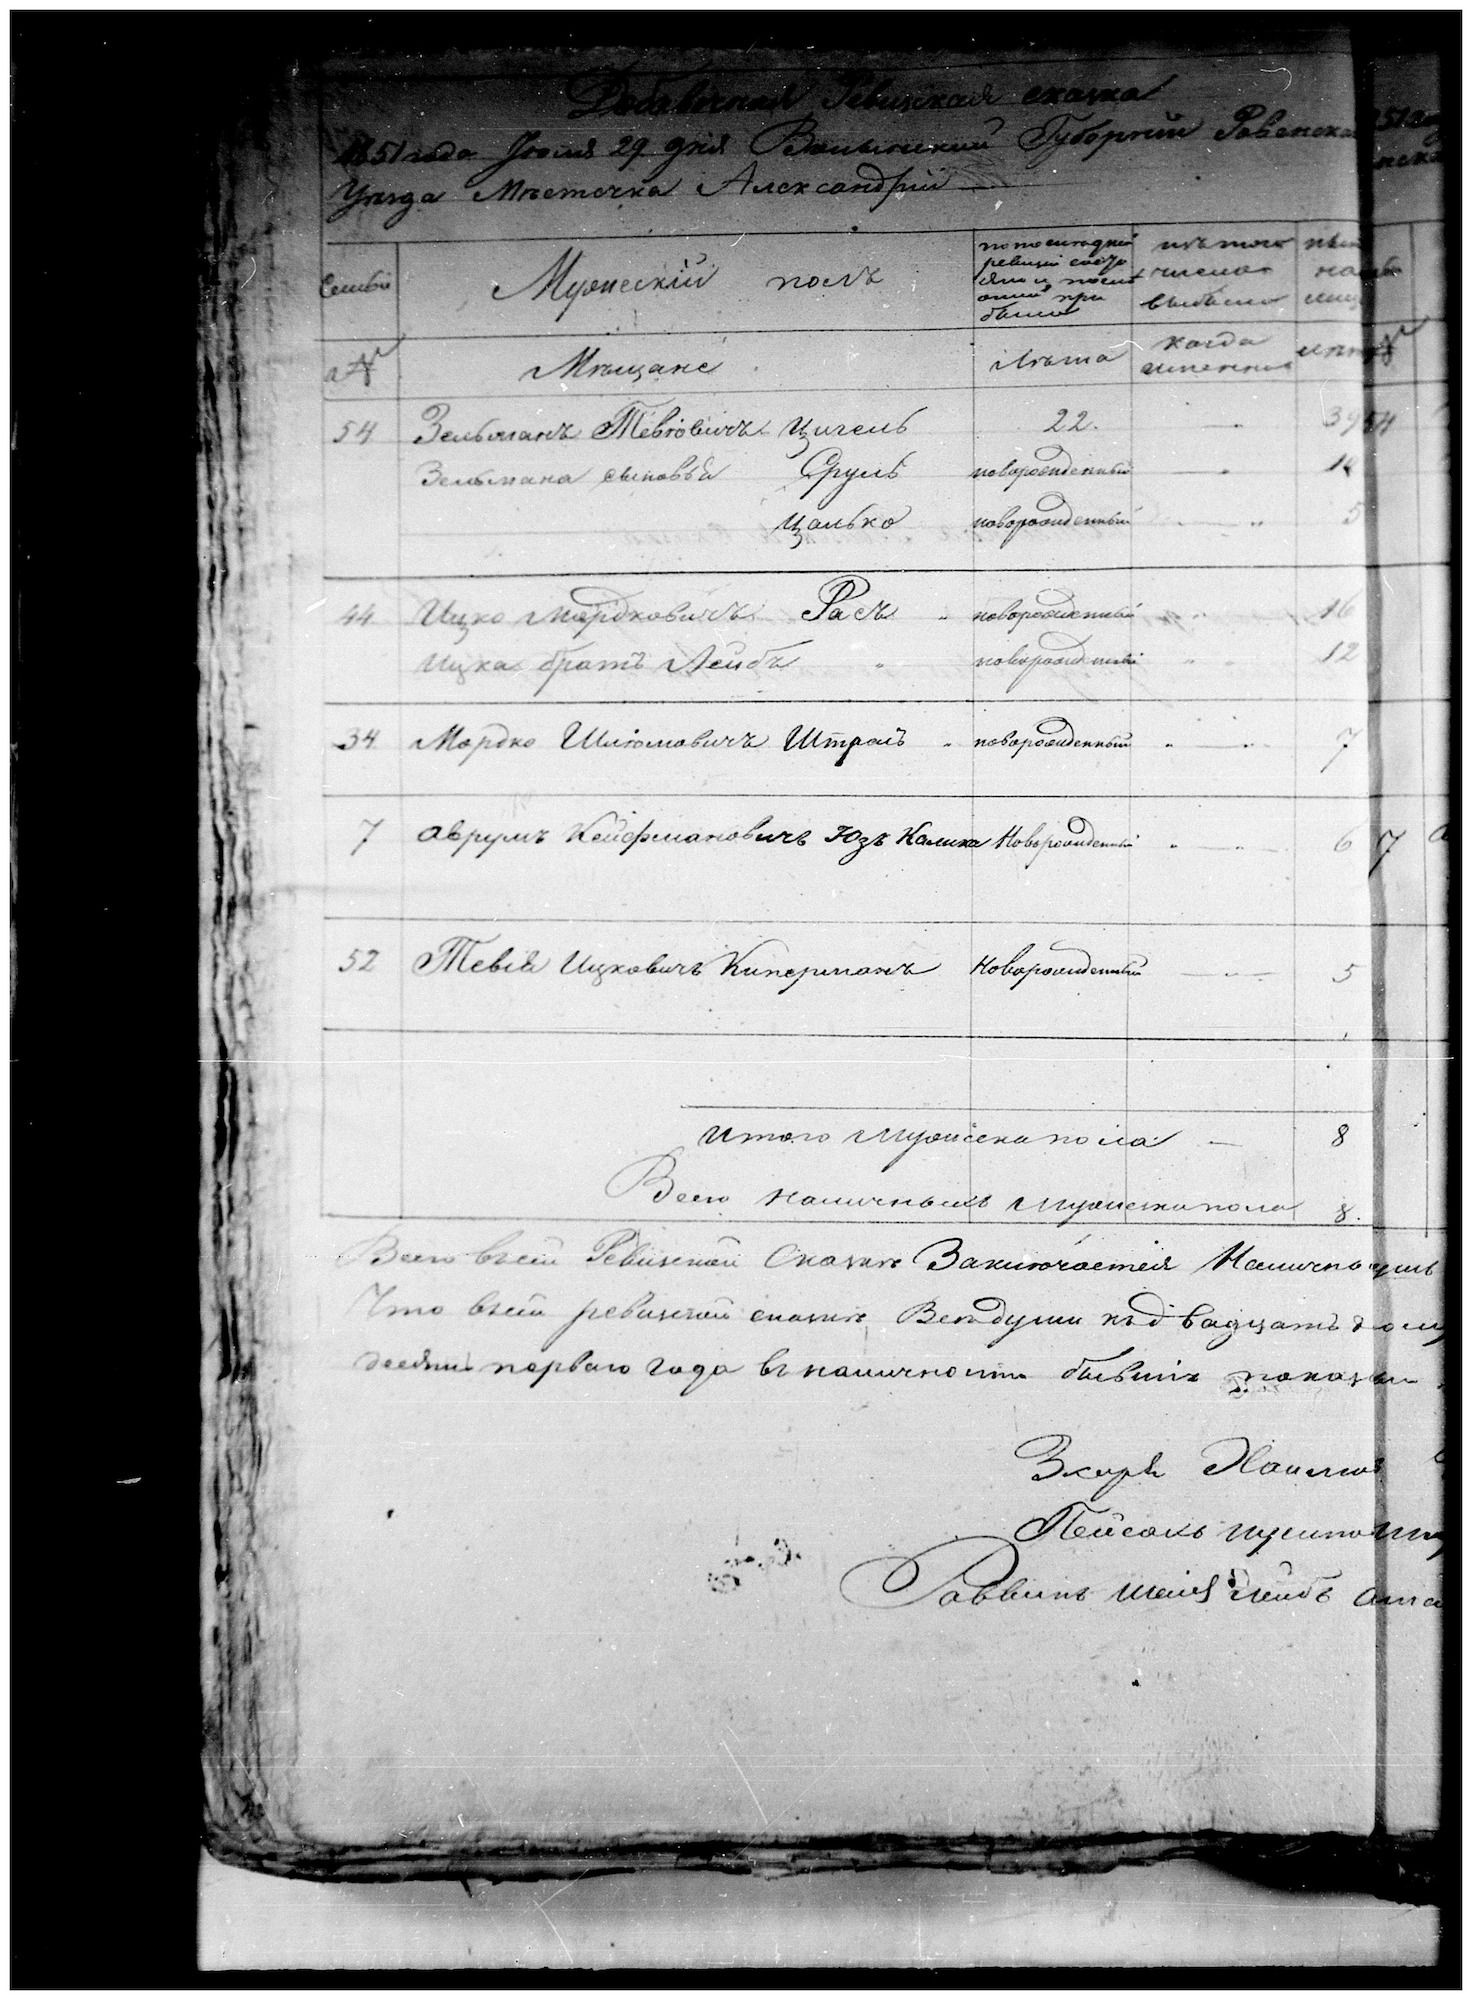 Добавочная Ревизская сказка
1851 года Июля 29 дня Волынской Губернии Ровенска
Уезда Местечка Александрии
Семьи
Мужескій полъ
по последней ревизіи состояло и после оной прибыло
изъ того числа выбыло
ныне на
№
Мещане
Лета
когда именно
лета
54 Зельманъ Тевіовичъ Цигель 22. 39 54
Зельмана сыновья Сруль новорожденный 14
Цалько новорожденный 5
44 Ицко Мордковичъ Расъ новорожденный 16
Ицка братъ Лейбъ новорожденный 12
34 Мордко Шліомовичъ Штраль новорожденный 7
7 Аврумъ Кейфмановичъ Юзъ Калика Новорожденный 6 7
52 Тевія Ицковичъ Киперманъ Новорожденный 5
Итого Мужеска пола 8
Всего наличныхъ Мужеска пола 8.
Всего въ сей Ревизской Сказке Заключается Налично
Что въ сей ревизской сказке Все души
десятъ перваго года въ наличности бывшіе показаны
Пейсахъ
Раввинъ Шая Лейбъ